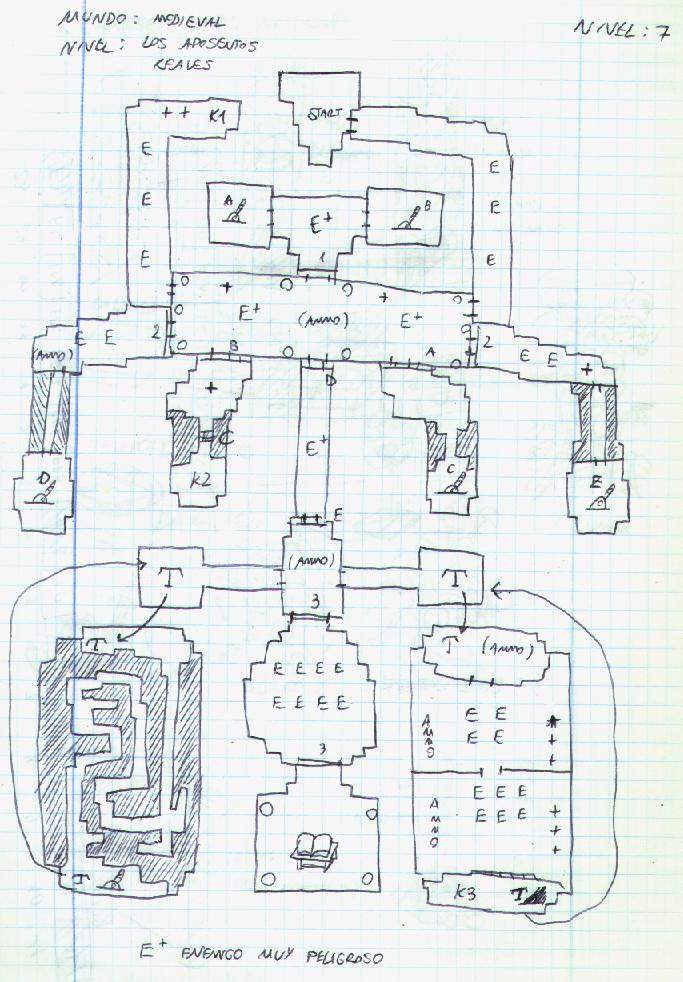 MUNDO: MEDIEVAL
NIVEL: 7
NIVEL: LOS APOSENTOS
REALES
+ + K1
START
E
E
E
E
E
E
A
B
E+
1
+
+
E+
(AMMO)
E+
2
E E
(AMMO)
2
E E
+
B
D
A
+
C
K2
E+
C
D
E
E
T
(AMMO)
T
3
T
T
(AMMO)
E E E E
E E E E
AMMO
E E
E E
+
+
+
3
AMMO
E E E
E E E
+
+
+
T
K3
T
E+ ENEMIGO MUY PELIGROSO